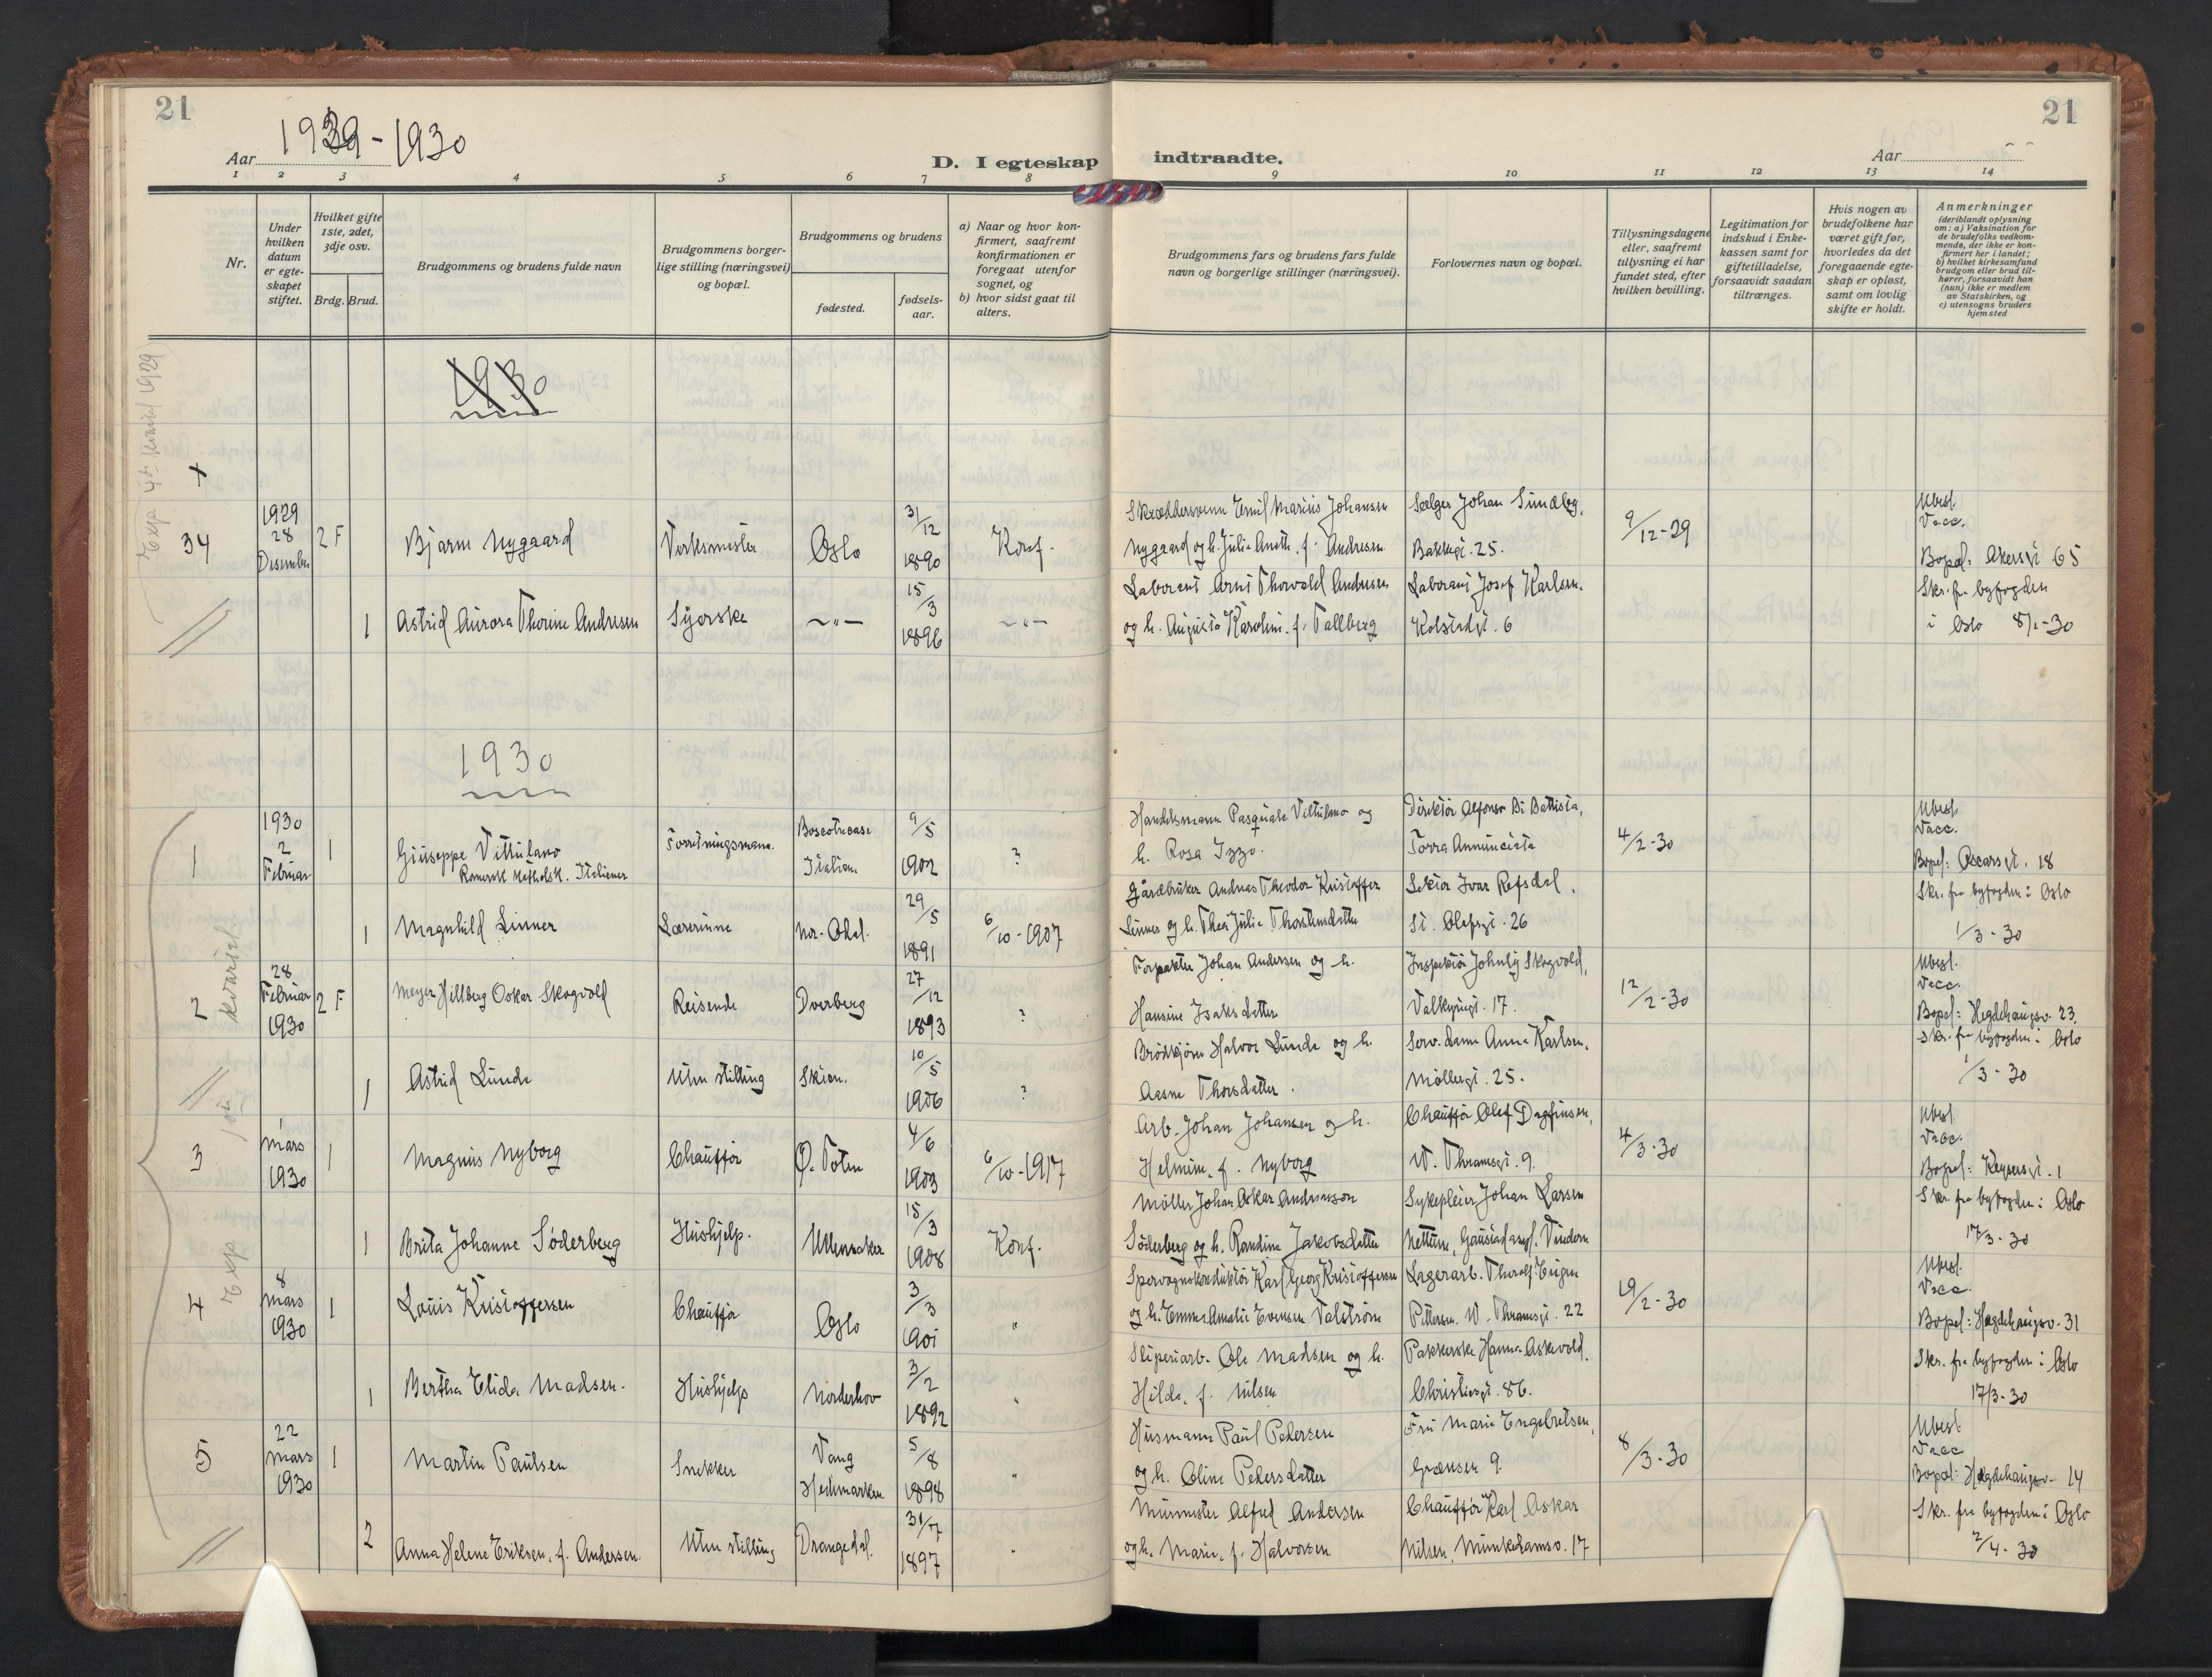 21
21
Aar 1929-1930
D. I egteskap indtraadte.
Aar
1 2 3 4 5 6 7 8 9 10 11 12 13 14
Nr.
Under hvilken datum er egteskapet stiftet.
Hvilket gifte 1ste, 2det, 3dje osv.
Brdg. Brud.
Brudgommens og brudens fulde navn
Brudgommens borgerlige stilling (næringsvei) og bopæl.
Brudgommens og brudens
fødested.
fødselsaar.
a) Naar og hvor konfirmert, saafremt konfirmationen er foregaat utenfor sognet, og
b) hvor sidst gaat til alters.
Brudgommens fars og brudens fars fulde navn og borgerlige stillinger (næringsvei).
Forlovernes navn og bopæl.
Tillysningsdagene eller, saafremt tillysning ei har fundet sted, efter hvilken bevilling.
Legitimation for indskud i Enkekassen samt for giftetilladelse, forsaavidt saadan tiltrænges.
Hvis nogen av brudefolkene har været gift før, hvorledes da det foregaaende egteskap er opløst, samt om lovlig skifte er holdt.
Anmerkninger
(deriblandt oplysning om: a) Vaksination for de brudefolks vedkommende, der ikke er konfirmert her i landet; b) hvilket kirkesamfund brudgom eller brud tilhører, forsaavidt han (hun) ikke er medlem av Statskirken, og c) utensogns bruders hjemsted
1930
34 1929 28 Desember 2 F Bjarne Nygaard Verksmester Oslo 31/12 1890 Konf.
Skræddersvenn Emil Marius Johansen Nygaard og h. Julie Aneth. f. Andresen
Selger Johan Sundby, Bakkegt. 25.
9/12-29
Ubesl. Vacc. Bopæl: Akersvt 65
1 Astrid Aurora Thorine Andresen Syerske -"- 15/3 1896 -"-
Laborant Arnt Thorvald Andresen og h. Augusta Karoline. f. Tallberg
Laborant Josef Karlsen. Kolstadgt. 6
Skr. fra byfogden i Oslo 8/1-30
1930
1 1930 2 Februar 1 Giuseppe Vittulano Romersk Katholsk. Italiener
Forretningsmann. Boscotrecase Italien 9/5 1902 ?
Handelsmann Pasquale Vittulano og h. Rosa Izzo.
Direktør Alfonso Di Battista, Torra Annunciata
4/2-30
Ubesl. Vacc. Bopæl: Oscarsgt. 18
1 Magnhild Linner Lærerinne Nor-Odal. 29/5 1891 6/10-1907
Gårdbruker Andreas Theodor Kristoffer Linner og h. Thea Julie Thorstensdatter
Lektor Ivar Refsdal, St. Olafsgt. 26
Skr. fra byfogden i Oslo 1/3-30
2 28 Februar 1930 2 F Meyer Hillberg Oskar Skogvold Reisende Dverberg 27/12 1893 ?
Forpakter Johan Andersen og h. Hansine Isaksdatter
Inspektør Johnly Skogvold, Valkyriegt. 17.
12/2-30
Ubesl. Vacc. Bopæl: Hegdehaugsv. 23.
1 Astrid Lunde Uten stilling Skien. 10/5 1906 ?
Brødkjører Halvor Lunde og h. Aasne Thorsdatter.
Serv. dame Anna Karlsen. Møllergt. 25.
Skr. fra byfogden i Oslo 1/3-30
3 1 mars 1930 1 Magnus Nyborg Chauffør Ø. Toten 4/6 1903 6/10-1917
Arb. Johan Johansen og h. Helmine. f. Nyborg
Chauffør Olef Dagfinsen, W. Thranesgt. 9.
4/3-30
Ubesl. Vacc. Bopæl: Keysersgt. 1
1 Brita Johanne Søderberg Hushjelp. Ullensaker 15/3 1908 Konf.
Møller Johan Oskar Andreasson Søderberg og h. Randine Jakobsdatter
Sykepleier Johan Larsen Gaustad asyl. Vinderen
Skr. fra byfogden i Oslo 17/3-30
4 8 mars 1930 1 Louis Kristoffersen Chauffør Oslo 3/3 1901 "
Sporvognskonduktør Karl Georg Kristoffersen og h. Emma Amalie Evensen Valstrøm
Lagerarb. Thoralf Eugen Pettersen. W. Thranesgt. 22
19/2-30
Ubesl. Vacc. Bopæl: Hegdehaugsv. 31
1 Bertha Elida Madsen. Hushjelp Norderhov 3/2 1892 "
Sliperiarb. Ole Madsen og h. Hilda. f. Nilsen
Pakkerske Hanna Askevold. Christiesgt. 86.
Skr. fra byfogden i Oslo 17/3-30
5 22 mars 1930 1 Martin Paulsen Snekker Vang Hedmarken 5/8 1898 "
Husmann Paul Pedersen og h. Oline Pedersdatter
Fru Marie Engebretsen, Grensen 9.
8/3-30
Ubesl. Vacc Bopæl: Hegdehaugsv. 14
2 Anna Helene Eriksen. f. Andersen. Uten stilling Drangedal. 31/7 1897 "
Murmester Alfred Andersen og h. Marie. f. Halvorsen
Chauffør Karl Oskar Nilsen, Munkedamsv. 17
Skr. fra byfogden i Oslo 2/4-30
Exp. 4de kvartal 1929
Exp 1ste kvartal